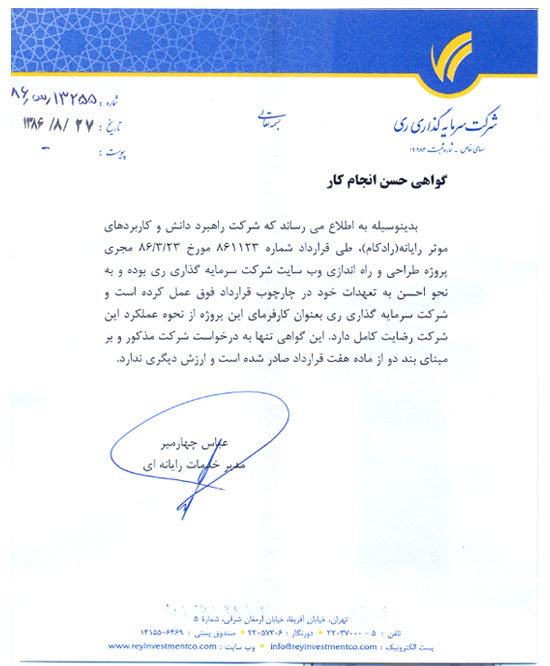 شرکت سرمایه گذاری ری
سهامی خاص - شماره ثبت ۱۹۸۴۰
بسمه تعالی
شماره : ۸۶٫س٫۱۳۲۵۵
تاریخ : ۱۳۸۶ /۸/ ۲۷
پیوست : -
گواهی حسن انجام کار
بدینوسیله به اطلاع می رساند که شرکت راهبرد دانش و کاربردهای
موثر رایانه(رادکام)، طی قرارداد شماره ۸۶۱۱۲۳ مورخ ۸۶/۳/۲۳ مجری
پروژه طراحی و راه اندازی وب سایت شرکت سرمایه گذاری ری بوده و به
نحو احسن به تعهدات خود در چارچوب قرارداد فوق عمل کرده است و
شرکت سرمایه گذاری ری بعنوان کارفرمای این پروژه از نحوه عملکرد این
شرکت رضایت کامل دارد. این گواهی تنها به درخواست شرکت مذکور و بر
مبنای بند دو از ماده هفت قرارداد صادر شده است و ارزش دیگری ندارد.
عباس چهارمیر
مدیر خدمات رایانه ای
تهران، خیابان آفریقا، خیابان ارمغان شرقی، شمارهٔ ۵
تلفن : ۵ - ۲۲۰۳۷۰۰۰ • دورنگار : ۲۲۰۵۷۲۰۶ • صندوق پستی : ۶۴۶۹-۱۴۱۵۵
پست الکترونیک : info@reyinvestmentco.com • وب سایت : www.reyinvestmentco.com